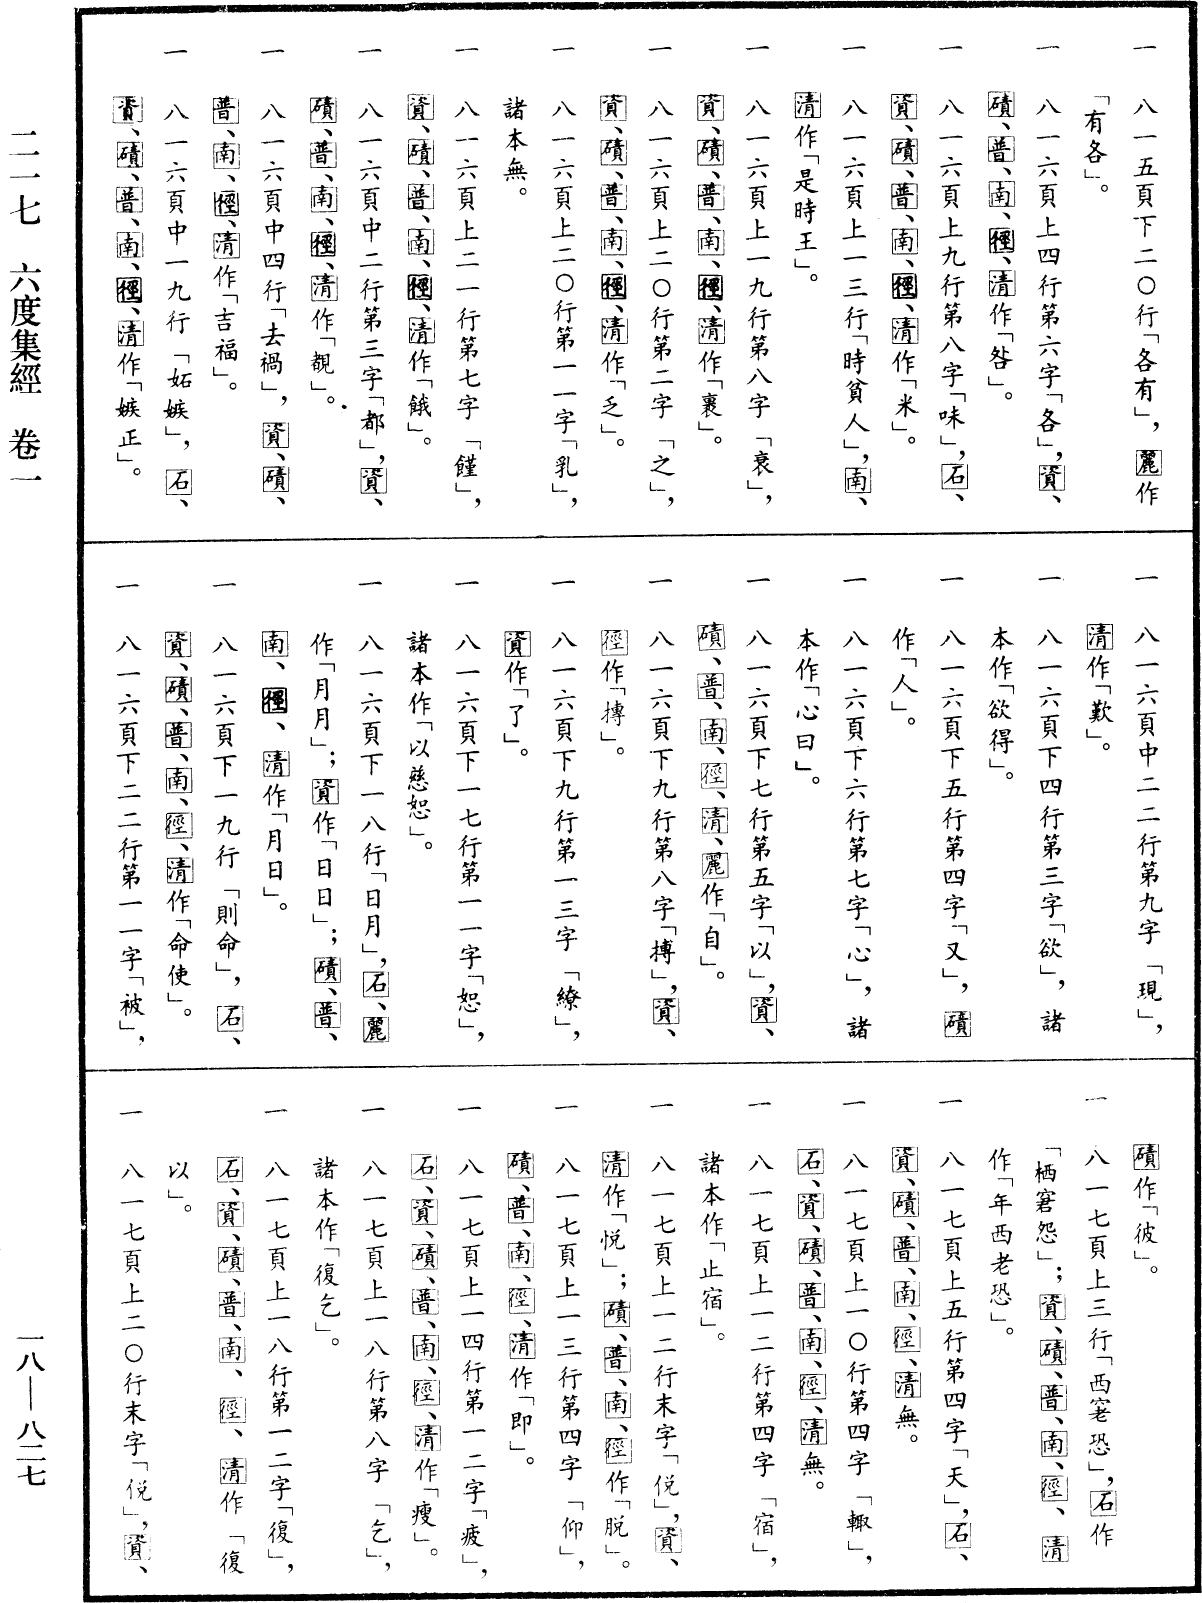 一　八一五頁下二〇行「各有」，麗作
「有各」。
一　八一六頁上四行第六字「各」，資、
磧、普、南、徑、清作「咎」。
一　八一六頁上九行第八字「味」，石、
資、磧、普、南、徑、清作「米」。
一　八一六頁上一三行「時貧人」，南、
清作「是時王」。
一　八一六頁上一九行第八字「衰」，
資、磧、普、南、徑、清作「裹」。
一　八一六頁上二〇行第二字「之」，
資、磧、普、南、徑、清作「乏」。
一　八一六頁上二〇行第一一字「乳」，
諸本無。
一　八一六頁上二一行第七字「饉」，
資、磧、普、南、徑、清作「餓」。
一　八一六頁中二行第三字「都」，資、
磧、普、南、徑、清作「覩」。
一　八一六頁中四行「去禍」，資、磧、
普、南、徑、清作「吉福」。
一　八一六頁中一九行「妬嫉」，石、
資、磧、普、南、徑、清作「嫉正」。
一　八一六頁中二二行第九字「現」，
清作「歎」。
一　八一六頁下四行第三字「欲」，諸
本作「欲得」。
一　八一六頁下五行第四字「又」，磧
作「人」。
一　八一六頁下六行第七字「心」，諸
本作「心曰」。
一　八一六頁下七行第五字「以」，資、
磧、普、南、徑、清、麗作「自」。
一　八一六頁下九行第八字「搏」，資、
徑作「摶」。
一　八一六頁下九行第一三字「繚」，
資作「了」。
一　八一六頁下一七行第一一字「恕」，
諸本作「以慈恕」。
一　八一六頁下一八行「日月」，石、麗
作「月月」；資作「日日」；磧、普、
南、徑、清作「月日」。
一　八一六頁下一九行「則命」，石、
資、磧、普、南、徑、清作「命使」。
一　八一六頁下二二行第一一字「被」，
磧作「彼」。
一　八一七頁上三行「西窆恐」，石作
「栖窘怨」；資、磧、普、南、徑、清
作「年西老恐」。
一　八一七頁上五行第四字「天」，石、
資、磧、普、南、徑、清無。
一　八一七頁上一〇行第四字「輙」，
石、資、磧、普、南、徑、清無。
一　八一七頁上一二行第四字「宿」，
諸本作「止宿」。
一　八一七頁上一二行末字「侻」，資、
清作「悅」；磧、普、南、徑作「脫」。
一　八一七頁上一三行第四字「仰」，
磧、普、南、徑、清作「即」。
一　八一七頁上一四行第一二字「疲」，
石、資、磧、普、南、徑、清作「瘦」。
一　八一七頁上一八行第八字「乞」，
諸本作「復乞」。
一　八一七頁上一八行第一二字「復」，
石、資、磧、普、南、徑、清作「復
以」。
一　八一七頁上二〇行末字「侻」，資、
二一一七　六度集經　卷一
一八—八二七